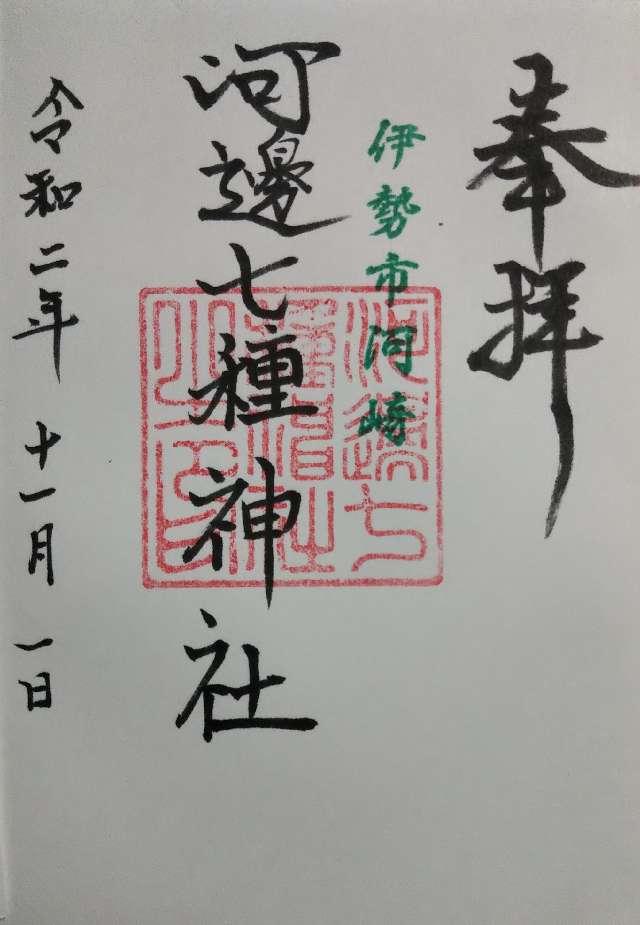 奉拝
伊勢市河崎
河邊七種神社
河邊七
種神社
之印
令和二年 十一月 一日